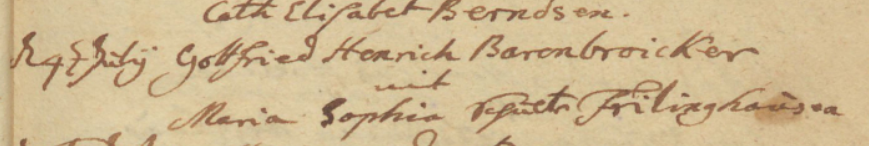 Cath Elisabet Berndsen.
July Gottfried Henrich Barenbroicker
mit
Maria Sophia Frilinghausen